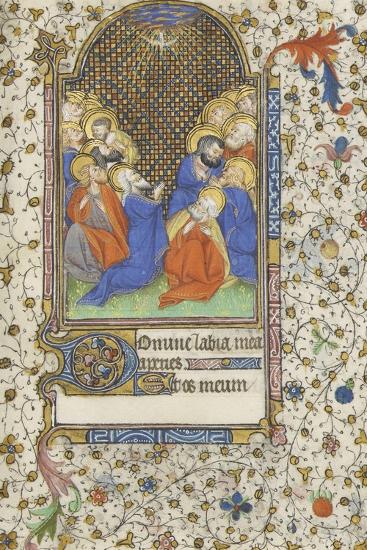 Domine labia mea
aperies
Et os meum